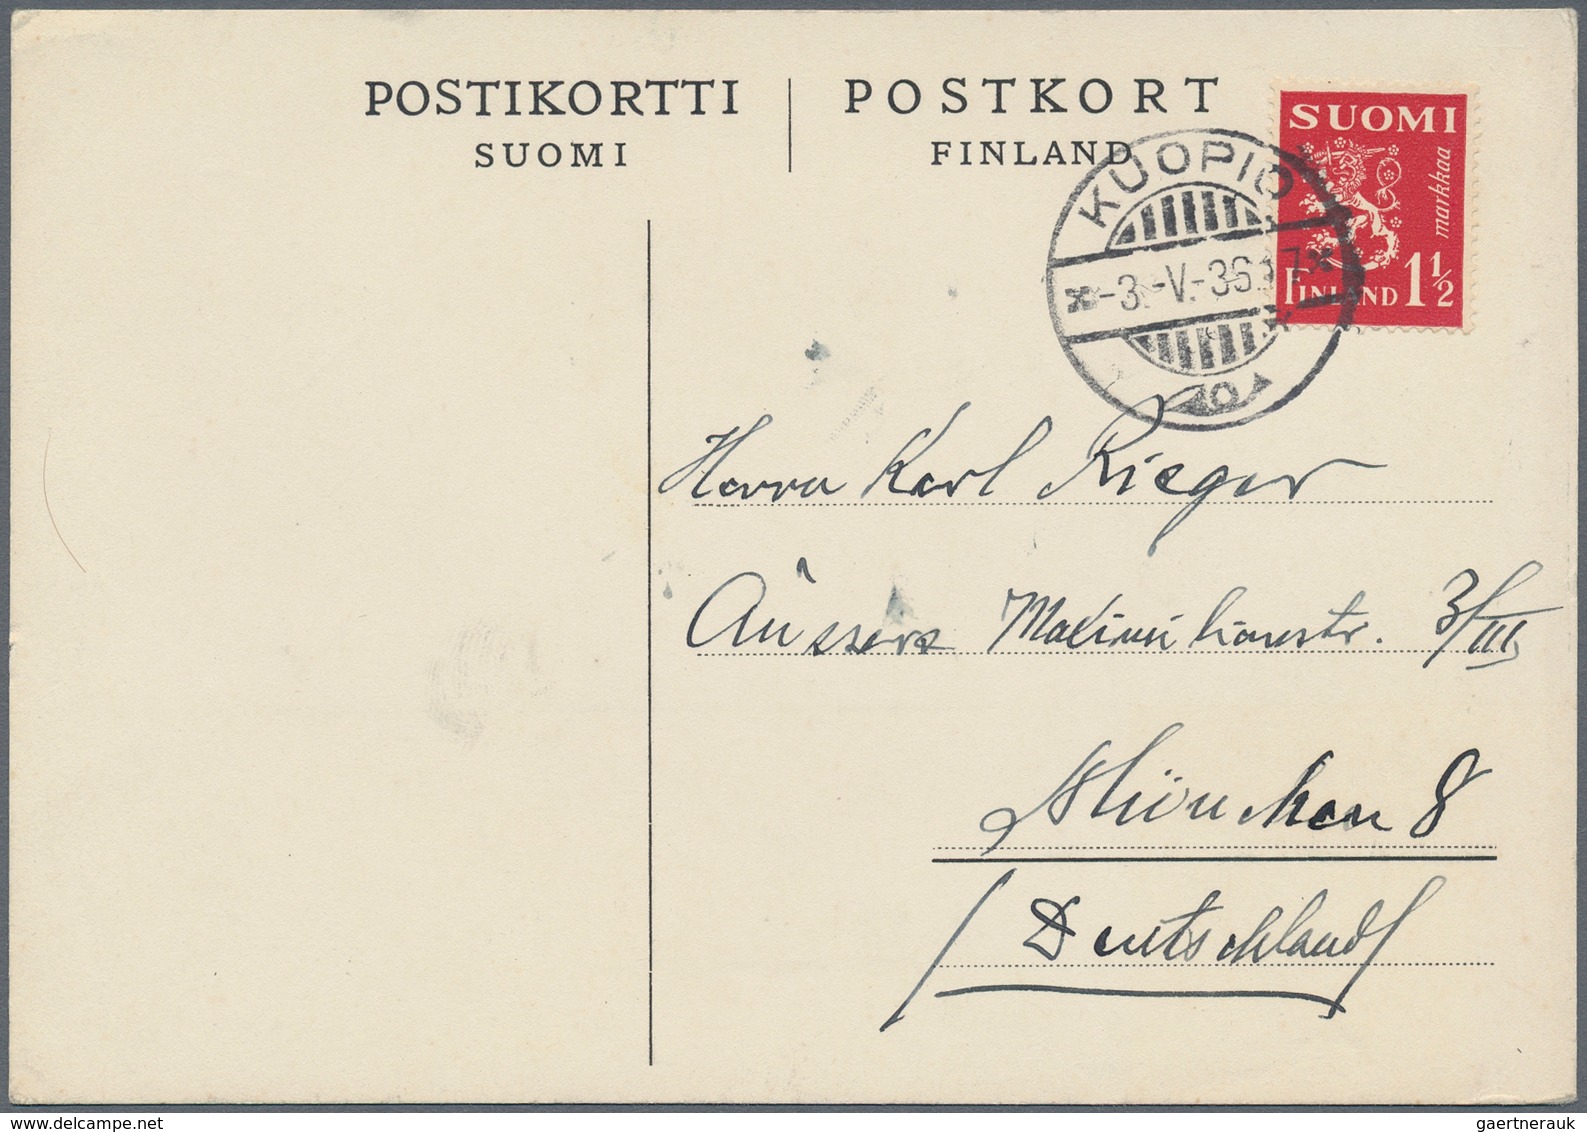 POSTIKORTTI | POSTKORT
SUOMI FINLAND
SUOMI
markkaa
FINLAND 1½
KUOPIO
-3.-V.-36
Herrn Karl Rieger
Äussere Maximilianstr. 3/III
München 8
/Deutschland/
delcampe.net
gaertnerauk